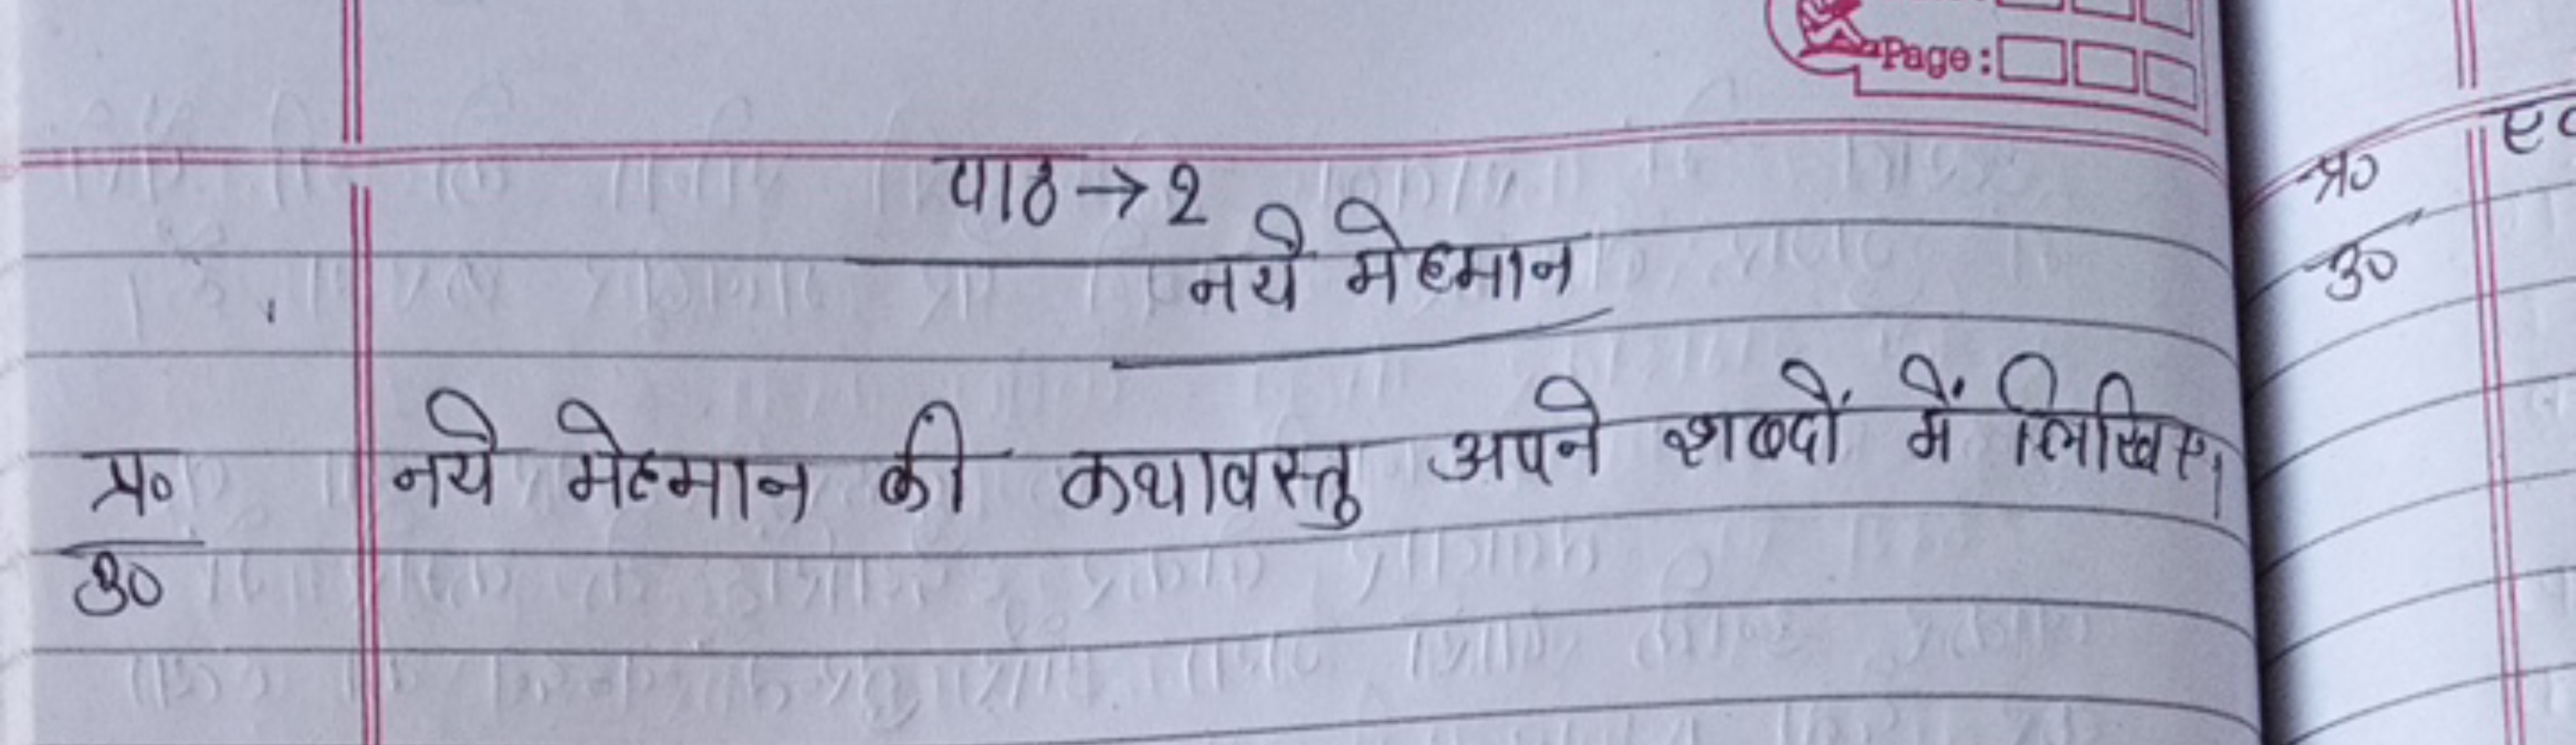 Page:
पाठ → 2
नये मेहमान
प्र० नये मेहमान की कथावस्तु अपने शब्दों में लिखिए।
उ०
प्र०
उ०